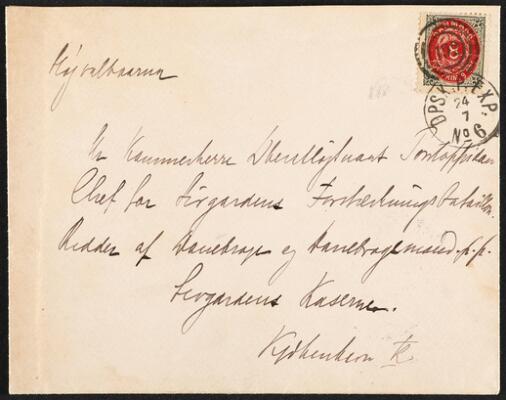 DANMARK
8
DPSK.P.EXP.
24
7
No 6
Højvelbaarne
Hr Kammerherre Oberstløjtnant
Chef for Livgardens Forstærkningsbataillon
Ridder af Danebroge og Danebrogsmand. p.p.
Livgardens Kaserne.
Kjøbenhavn K.